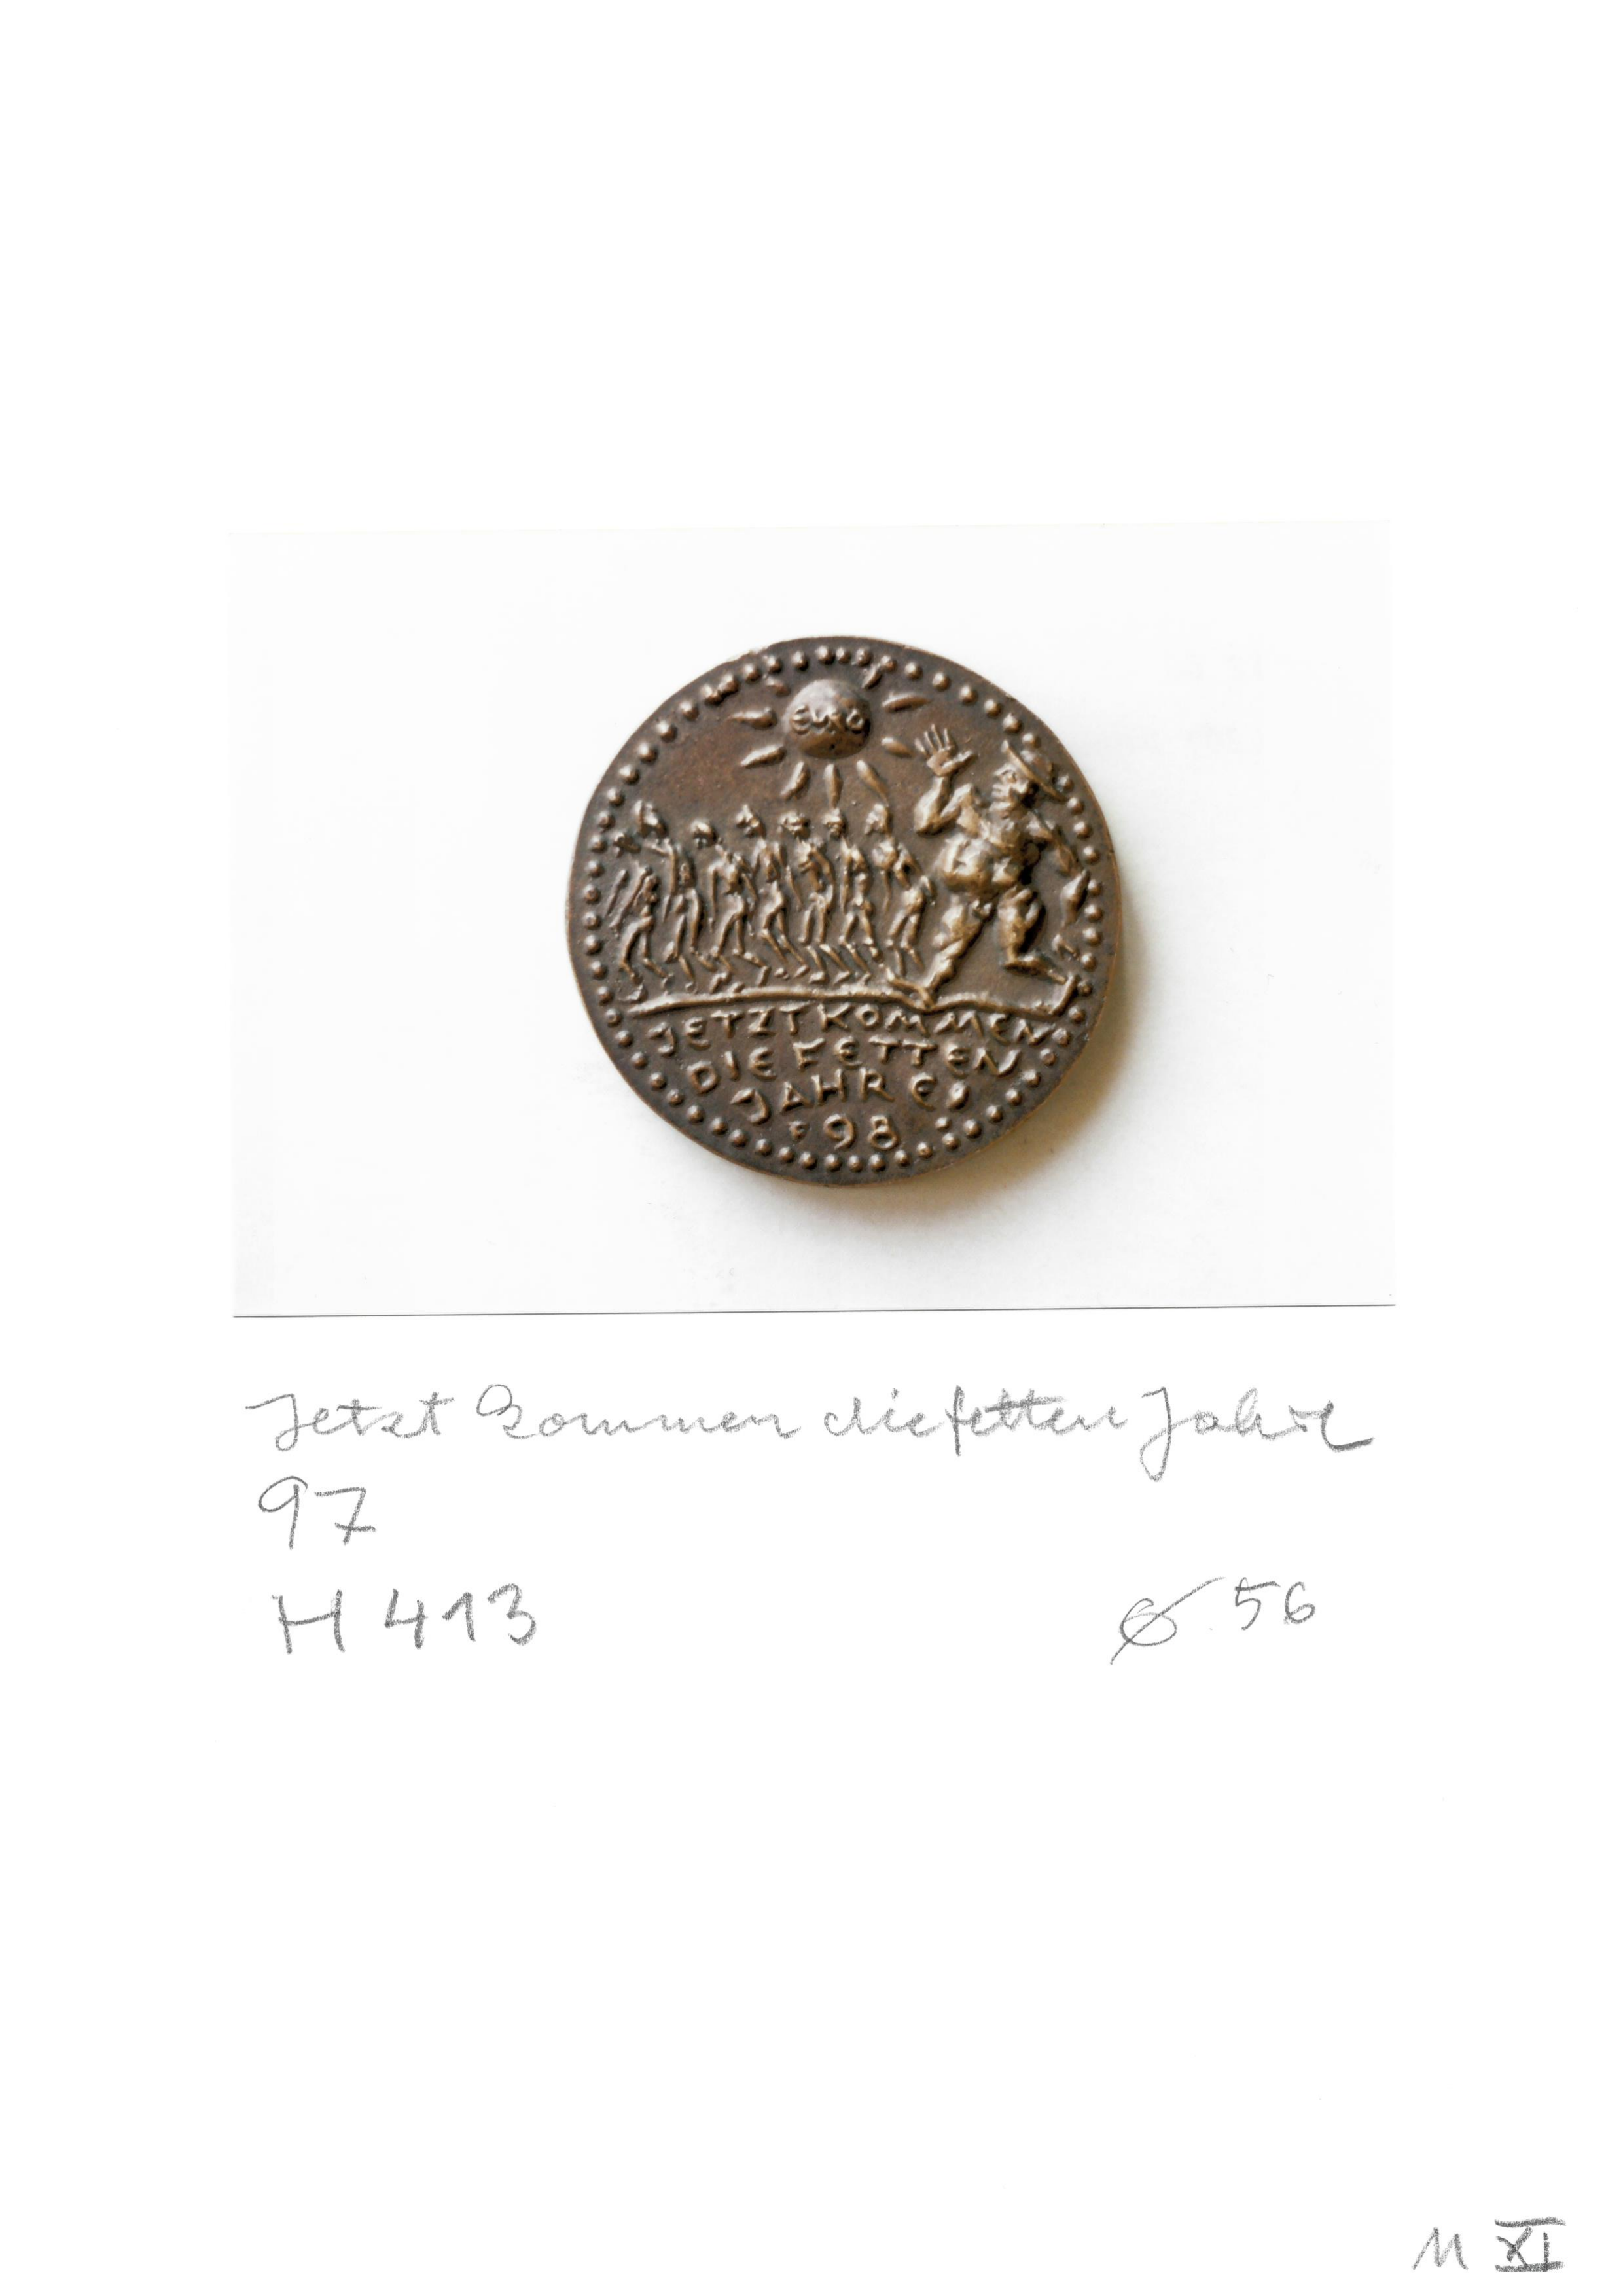 EURO
JETZT KOMMEN
DIE FETTEN
JAHRE
98
Jetzt kommen die fetten Jahre
97
H 413
Ø 56
M XI